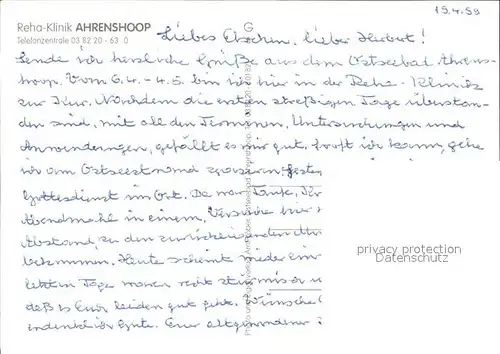 Reha-Klinik AHRENSHOOP
Telefonzentrale 03 82 20 - 63 0
19.4.99
Liebes , lieber Herbert!
Sende ich herzliche Grüße aus dem Ostseebad Ahrens-
hoop. Vom 6.4. - 4.5. bin ich hier in der Reha-Klinik
zur Kur. Nachdem die ersten streßigen Tage überstan-
den sind, mit all den Terminen, Untersuchungen und
Anwendungen, gefällt es mir gut, sooft ich kann, gehe
ich am Ostseestrand spazieren. Gestern
Gottesdienst im Ort. Da war Taufe,
Abendmahl in einem. Versuche hier
Abstand zu den zurückliegenden
bekommen. Heute scheint wieder
letzten Tage waren recht stürmisch
daß es Euch beiden gut geht. Wünsche
Gute. Euer
privacy protection
Datenschutz